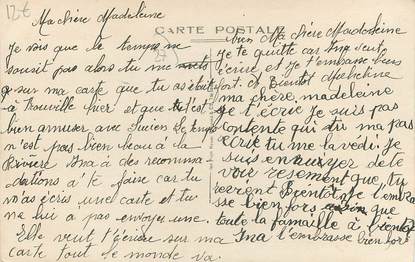 12€
Ma chère Madeleine
CARTE POSTALE
je vois que le temps ne
sourit pas alors tu me mets
sur ma carte que tu as était
à trouville hier et que tu t'est
bien amuser avec Lucien le temps
n'est pas bien beau à la
Rivière Ina à des recomma
dations à te faire car tu
m'as ecris une carte et tu
ne lui a pas envoyer une.
Elle veut t'écrire sur ma
carte tout le monde va
bien Ma chère Madeleine
je te quitte car Ina veut
écrire, et je t'embrasse bien
fort. et Bientôt Madeleine
ma chère madeleine
je t'écris je suis pas
contente qui dit ma pas
ecrit tu me la vedi. je
suis ennuyer de te
voir resement que tu
revient Bientôt je t'embra
sse bien fort que
toute la famaille à bientôt
Ina t'embrasse bien fort